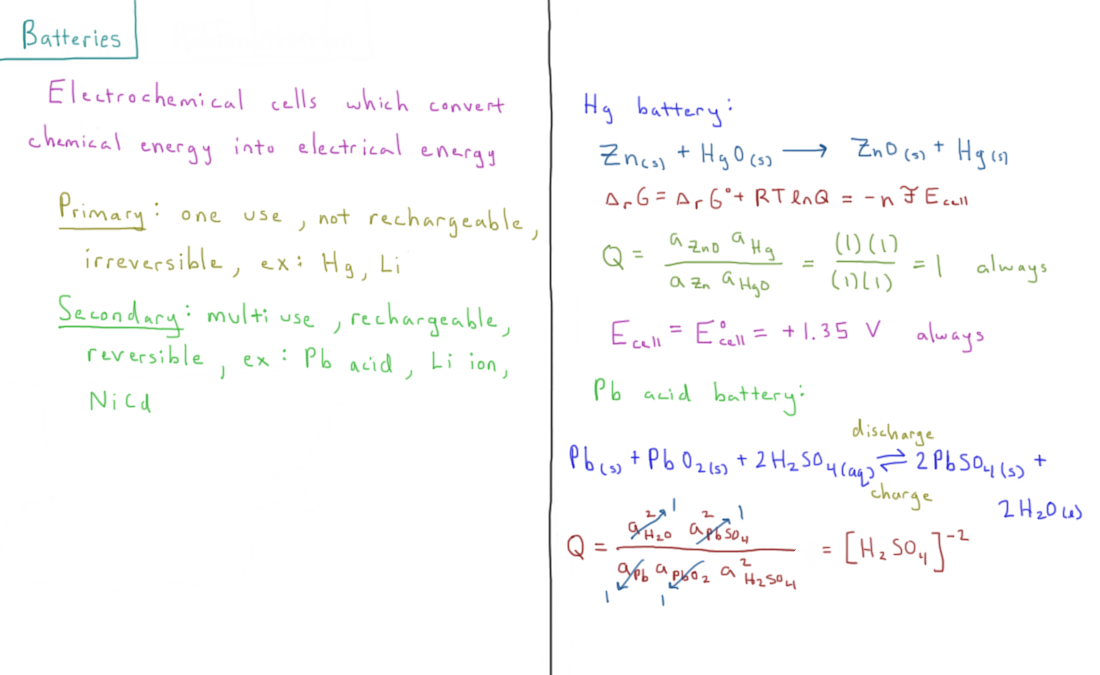 Batteries
Electrochemical cells which convert
chemical energy into electrical energy
Primary: one use, not rechargeable,
irreversible, ex: Hg, Li
Secondary: multi use, rechargeable,
reversible, ex: Pb acid, Li ion,
NiCd
Hg battery:
Zn(s) + HgO(s) ⟶ ZnO(s) + Hg(l)
ΔᵣG = ΔᵣG° + RT lnQ = -n ℱ E cell
Q = a ZnO a Hg / a Zn a HgO = (1)(1) / (1)(1) = 1 always
E cell = E° cell = +1.35 V always
Pb acid battery:
discharge
Pb(s) + PbO₂(s) + 2H₂SO₄(aq) ⇌ 2PbSO₄(s) +
charge
2H₂O(l)
Q = a² H₂O 1 a² PbSO₄ 1 / a Pb 1 a PbO₂ 1 a² H₂SO₄ = [H₂SO₄]⁻²